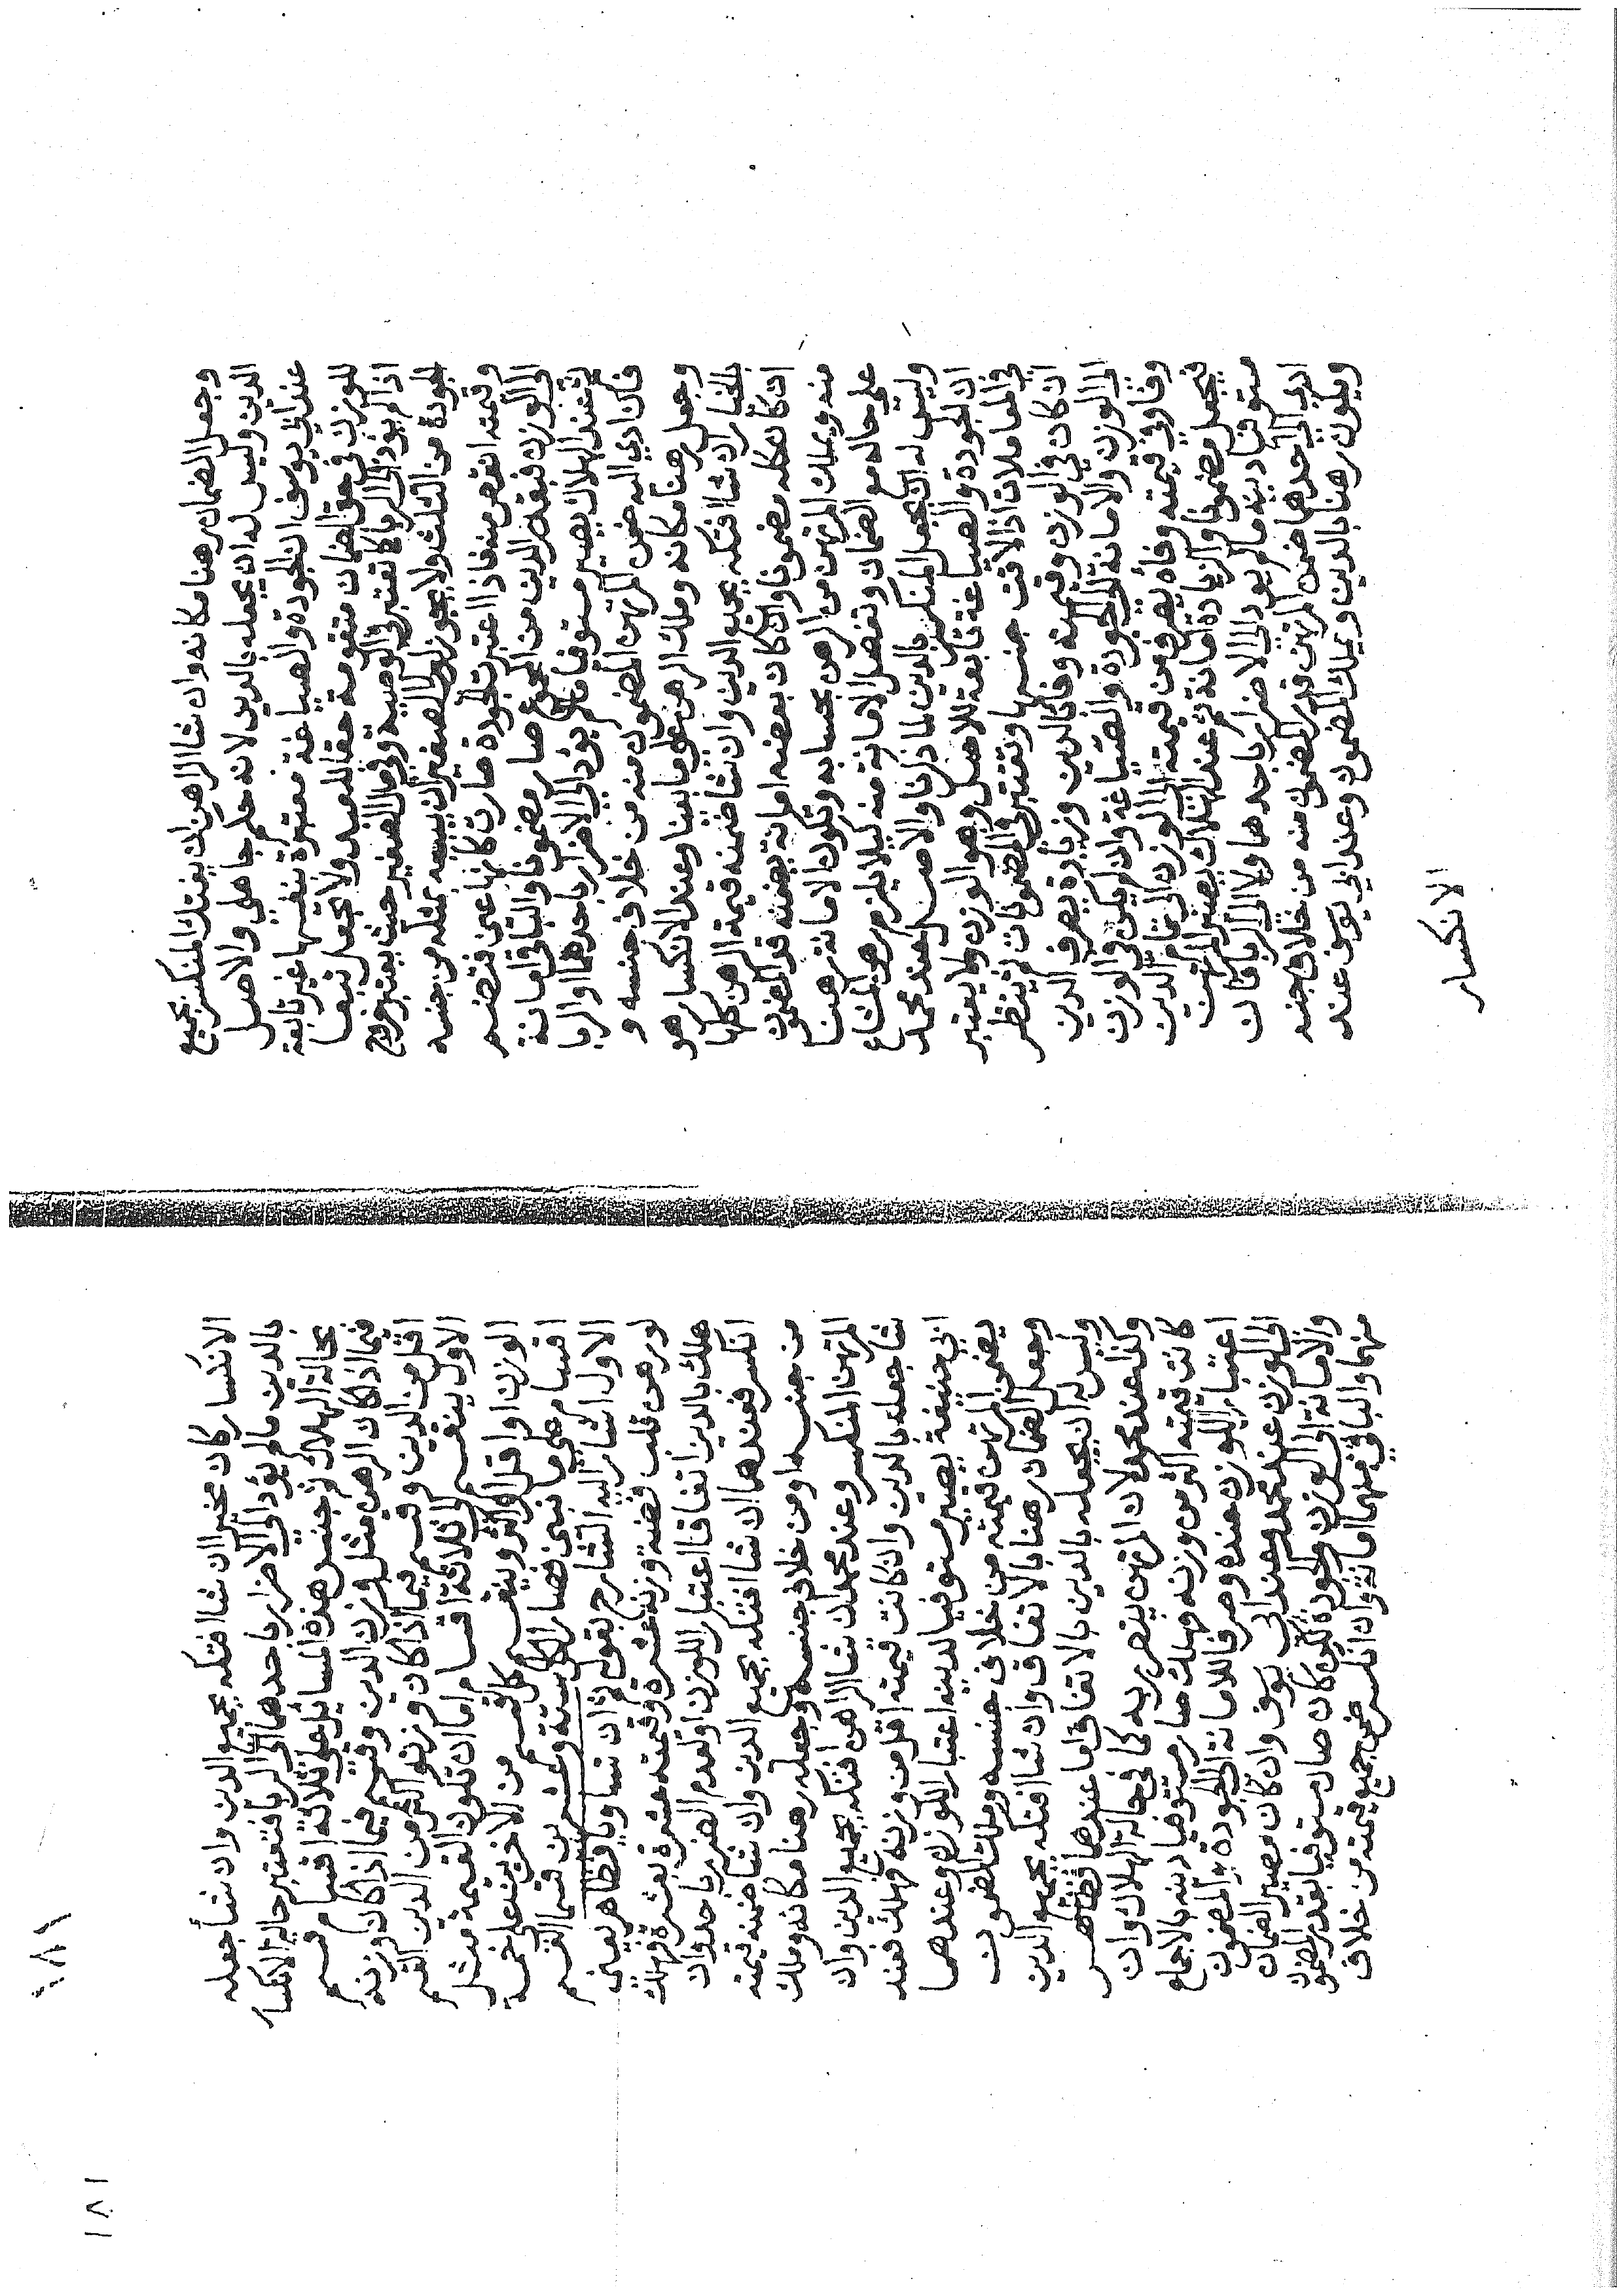 وجعل الضمان رهنا مكانه وان شا الراهن ان يفتك المنكسر بجميع
الدين وليس له ان يجعله بالدين لانه حكم جاهلي والاصل
عند ابي يوسف ان الجودة والصياغة معتبرة بنفسها غير تابعة
للوزن في حق الضمان متقومة حقا للعبد ولا تجعل تبعا
اذا لم يود الى الربا كما تعتبر في الوصية وفي مال الصغير حيث يعتبر خروج
الجودة من الثلث ولا يجوز لولي الصغير ان يبيعه بمثله من جنسه
وقيمته انقص منه فاذا اعتبرت الجودة صارت كانها عين فتضم
الى الوزن فبقدر الدين من المجموع صار مضمونا والباقي امانة
ثم عند الهلاك يصير مستوفيا ما لم يؤد الى الاضرار باحدهما او الربا
فان ادي اليه ضمن المرتهن المضمون منه من خلاف جنسه و
وجعل رهنا مكانه وملك الرهن على ما بينا وعند الانكسار هو
بالخيار ان شا افتكه بجميع الدين وان شا ضمنه قيمة الرهن كلها
ان كان كله مضمونا وان كان بعضه امانة يضمنه قدر المضمون
منه ويملك المرتهن من الرهن بحسابه وتكون الامانة رهنا
على حاله مع الضمان وتفصل الامانة منه ليلا يلزم رهن المشاع
وليس له ان يجعل المنكسر بالدين لما ذكرنا والاصل عند محمد
ان الجودة والصياغة تابعة للاصل وهو الوزن ولا يعتبر
في المعاملات اذا لاقت جنسها وتعتبر في المضمونات ثم ينظر
ان كان في الوزن وقيمته وفا بالدين وزيادة يصرف الدين
الى الوزن والامانة الى الجودة والصياغة وان لم يكن في الوزن
وفا وفي قيمته وفاء يصرف من قيمته الى الوزن الى تمام الدين
فيجعل مضمونا والزيادة امانة ثم عند الهلاك يصير المرتهن
مستوفيا دينه ما لم يود الى الاضرار باحدهما ولا الى الربا فان
ادي الى احدهما ضمن المرتهن قدر المضمون منه من خلاف جنسه
ويكون رهنا بالدين ويملك المضمون وعند ابي يوسف عنده
الانكسار
١٨١
الانكسار كان مخيرا ان شا افتكه بجميع الدين وان شأ جعله
بالدين ما لم يؤد الى الاضرار باحدهما الى الربا فتعتبر حالة الانكسار
بحالة الهلاك ثم جنس هذه المسايل على ثلاثة اقسام قسم
فيما اذا كان الرهن مثل وزن الدين وقسم فيما اذا كان وزنه
اقل من الدين وقسم فيما اذا كان وزنه اكثر من الدين القسم
الاول ينقسم الى ثلاثة اقسام اما ان تكون القيمة مثل
الوزن او اقل او اكثر وينقسم كل قسم من الاخرين على خمسة
اقسام على ما نبين فصار الكل ستة وعشرين قسما القسم
الاول اشار اليه الشارح بقوله ان تساويا فظاهر يعني
لو رهن قلب فضة وزنه عشرة وقيمته عشرة بعشرة فهلك
هلك بالدين اتفاقا اعتبارا للوزن ولعدم الضرر باحد وان
انكسر فعندهما ان شا افتكه بجميع الدين وان شا ضمنه قيمته
من جنسها ومن خلاف جنسه وجعله رهنا مكانه وملك
المرتهن المنكسر وعند محمد ان شا الراهن افتكه بجميع الدين وان
شا جعله بالدين وان كانت قيمته اقل من وزنه فهلك فعند
ابي حنيفة يصير مستوفيا لدينه اعتبارا للوزن وعندهما
يضمن المرتهن قيمته من خلاف جنسه وملك المضمون
وجعل الضمان رهنا بالاتفاق وان شا افتكه بجميع الدين
وليس له ان يجعله بالدين بالاتفاق اما عندهما فظاهر
وكذا عند محمد لان المرتهن يتضرر به كما في حالة الهلاك وان
كانت قيمته اكثر من وزنه فهلك صار مستوفيا دينه بالاجماع
اعتبارا للوزن عنده وصرفا للامانة الى الجودة والمضمون
الى الوزن عند محمد وعند ابي يوسف وان كان يصير الضمان
والامانة الى الوزن والجودة لكن كان صار مستوفيا بقدر المضمون
منهما والباقي منهما امانة وان انكسر ضمن جميع قيمته من خلاف